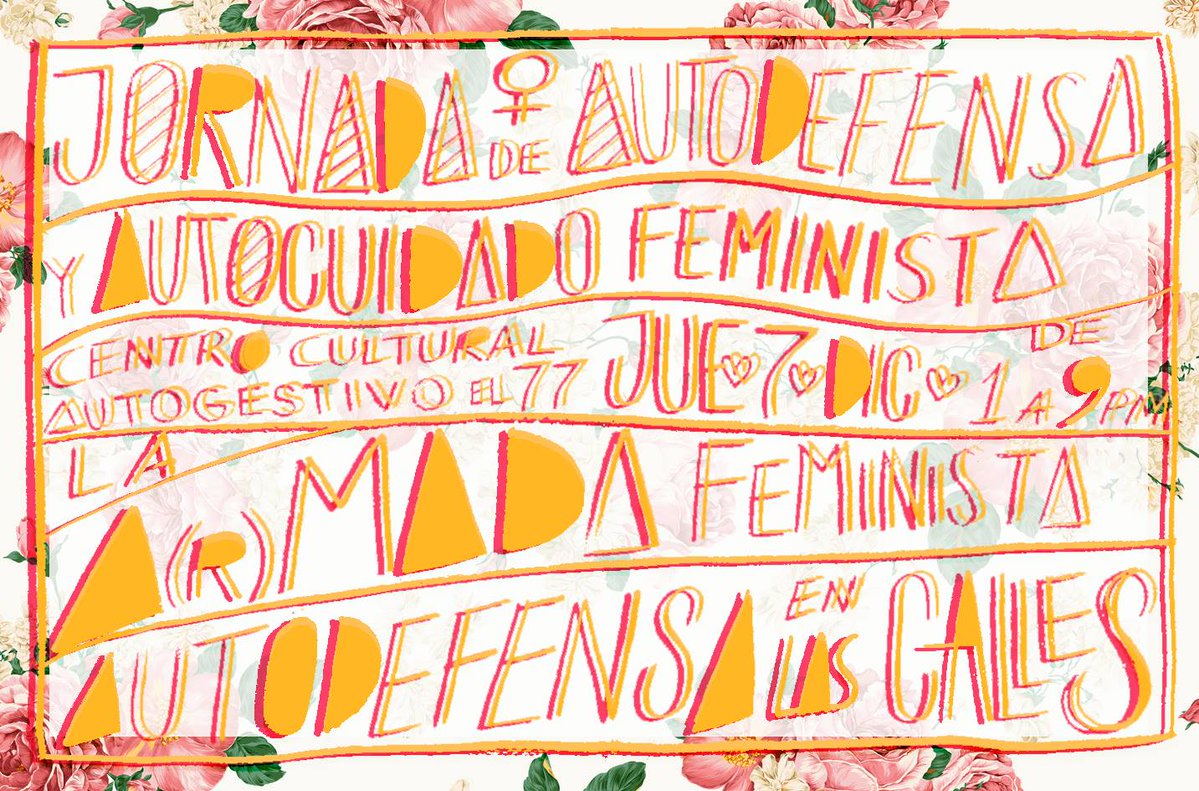 JORNADA ♀ DE AUTODEFENSA
Y AUTOCUIDADO FEMINISTA
CENTRO CULTURAL
AUTOGESTIVO EL 77
JUE ♡ 7 ♡ DIC ♡ DE 1 A 9 PM
LA
A(R)MADA FEMINISTA
AUTODEFENSA EN LAS CALLES